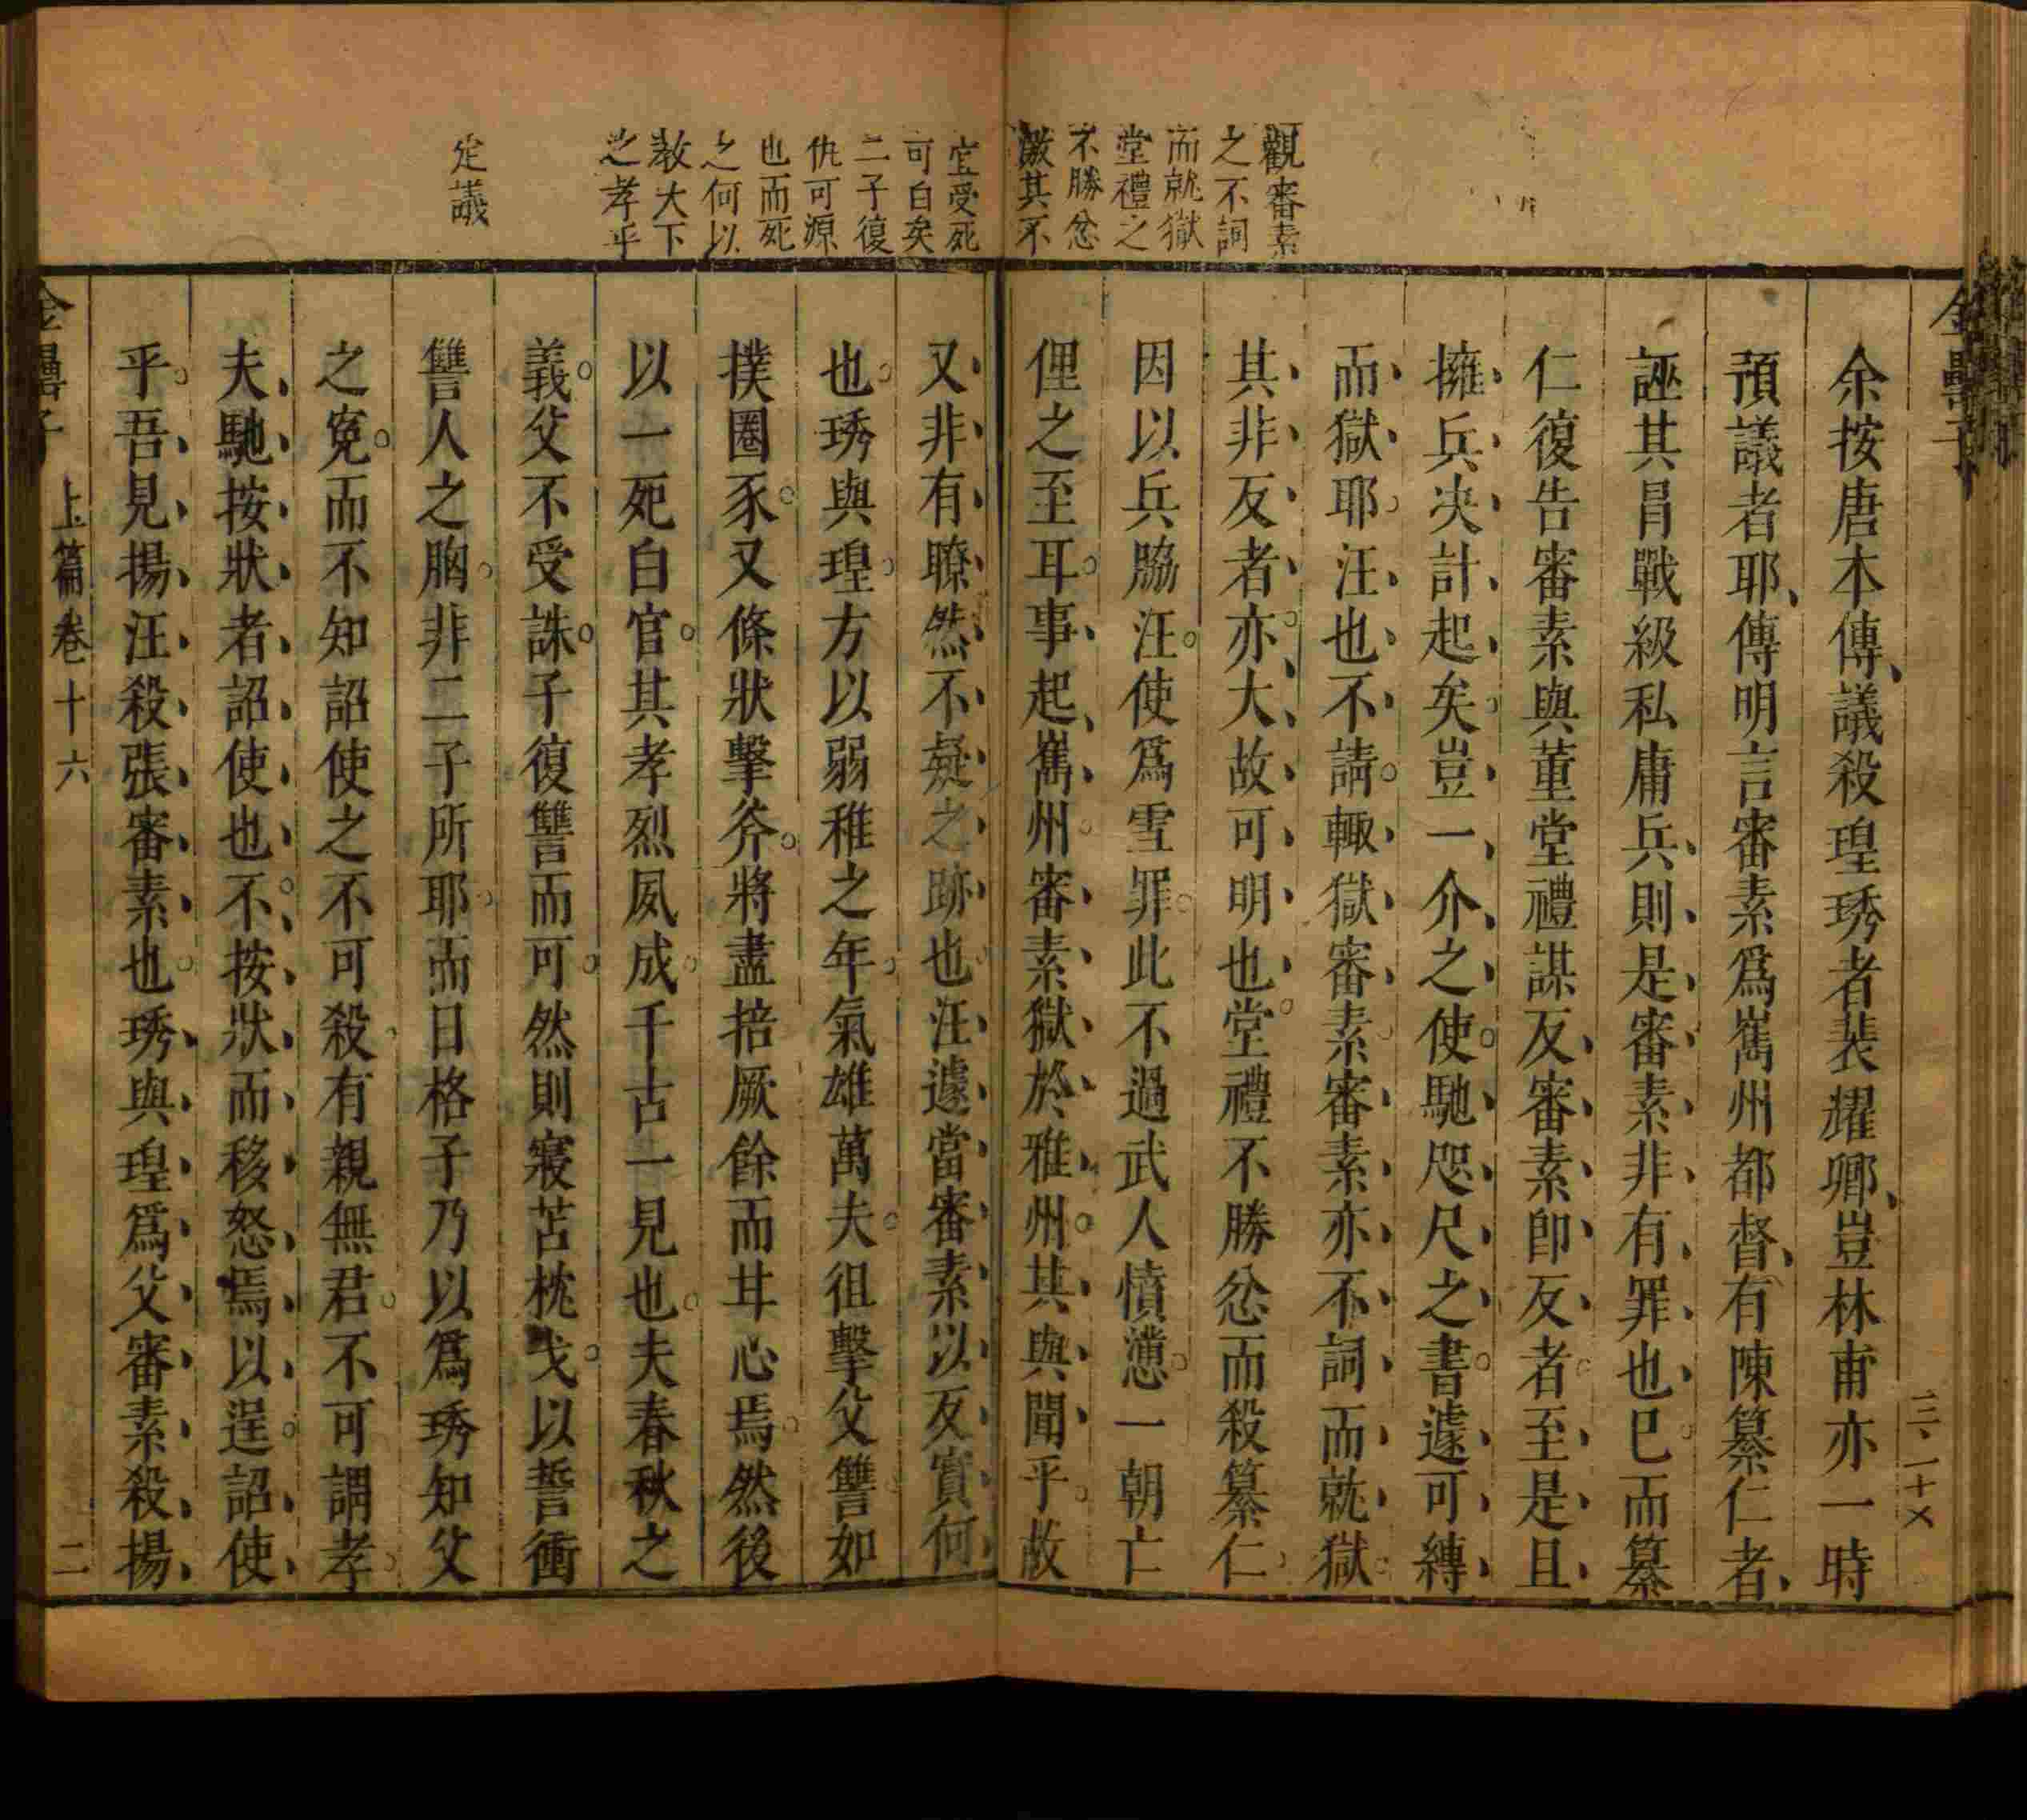 觀審素
之不詞
而就獄
堂禮之
不勝忿
激其不
余按唐本傳議殺瑝琇者裴耀卿豈林甫亦一時
預議者耶傳明言審素爲嶲州都督有陳纂仁者
誣其冒戰級私庸兵則是審素非有罪也巳而纂
仁復告審素與董堂禮謀反審素卽反者至是且
擁兵决計起矣豈一介之使馳咫尺之書遽可縛
而獄耶汪也不請輙獄審素審素亦不詞而就獄
其非反者亦大故可明也堂禮不勝忿而殺纂仁
因以兵脇汪使爲雪罪此不過武人憤懣一朝亡
俚之至耳事起嶲州審素獄於雅州其與聞乎故
宜受死
可白矣
二子復
仇可源
也而死
之何以
敎大下
之孝乎
定議
又非有瞭然不疑之跡也汪遽當審素以反實何
也琇與瑝方以弱稚之年氣雄萬夫徂擊父讐如
撲圈豕又條狀擊斧將盡掊厥餘而甘心焉然後
以一死白官其孝烈夙成千古一見也夫春秋之
義父不受誅子復讐而可然則寢苫枕戈以誓衝
讐人之胸非二子所耶而日格子乃以爲琇知父
之寃而不知詔使之不可殺有親無君不可謂孝
夫馳按狀者詔使也不按狀而移怒焉以逞詔使
乎吾見揚汪殺張審素也琇與瑝爲父審素殺揚
上篇卷十六
二